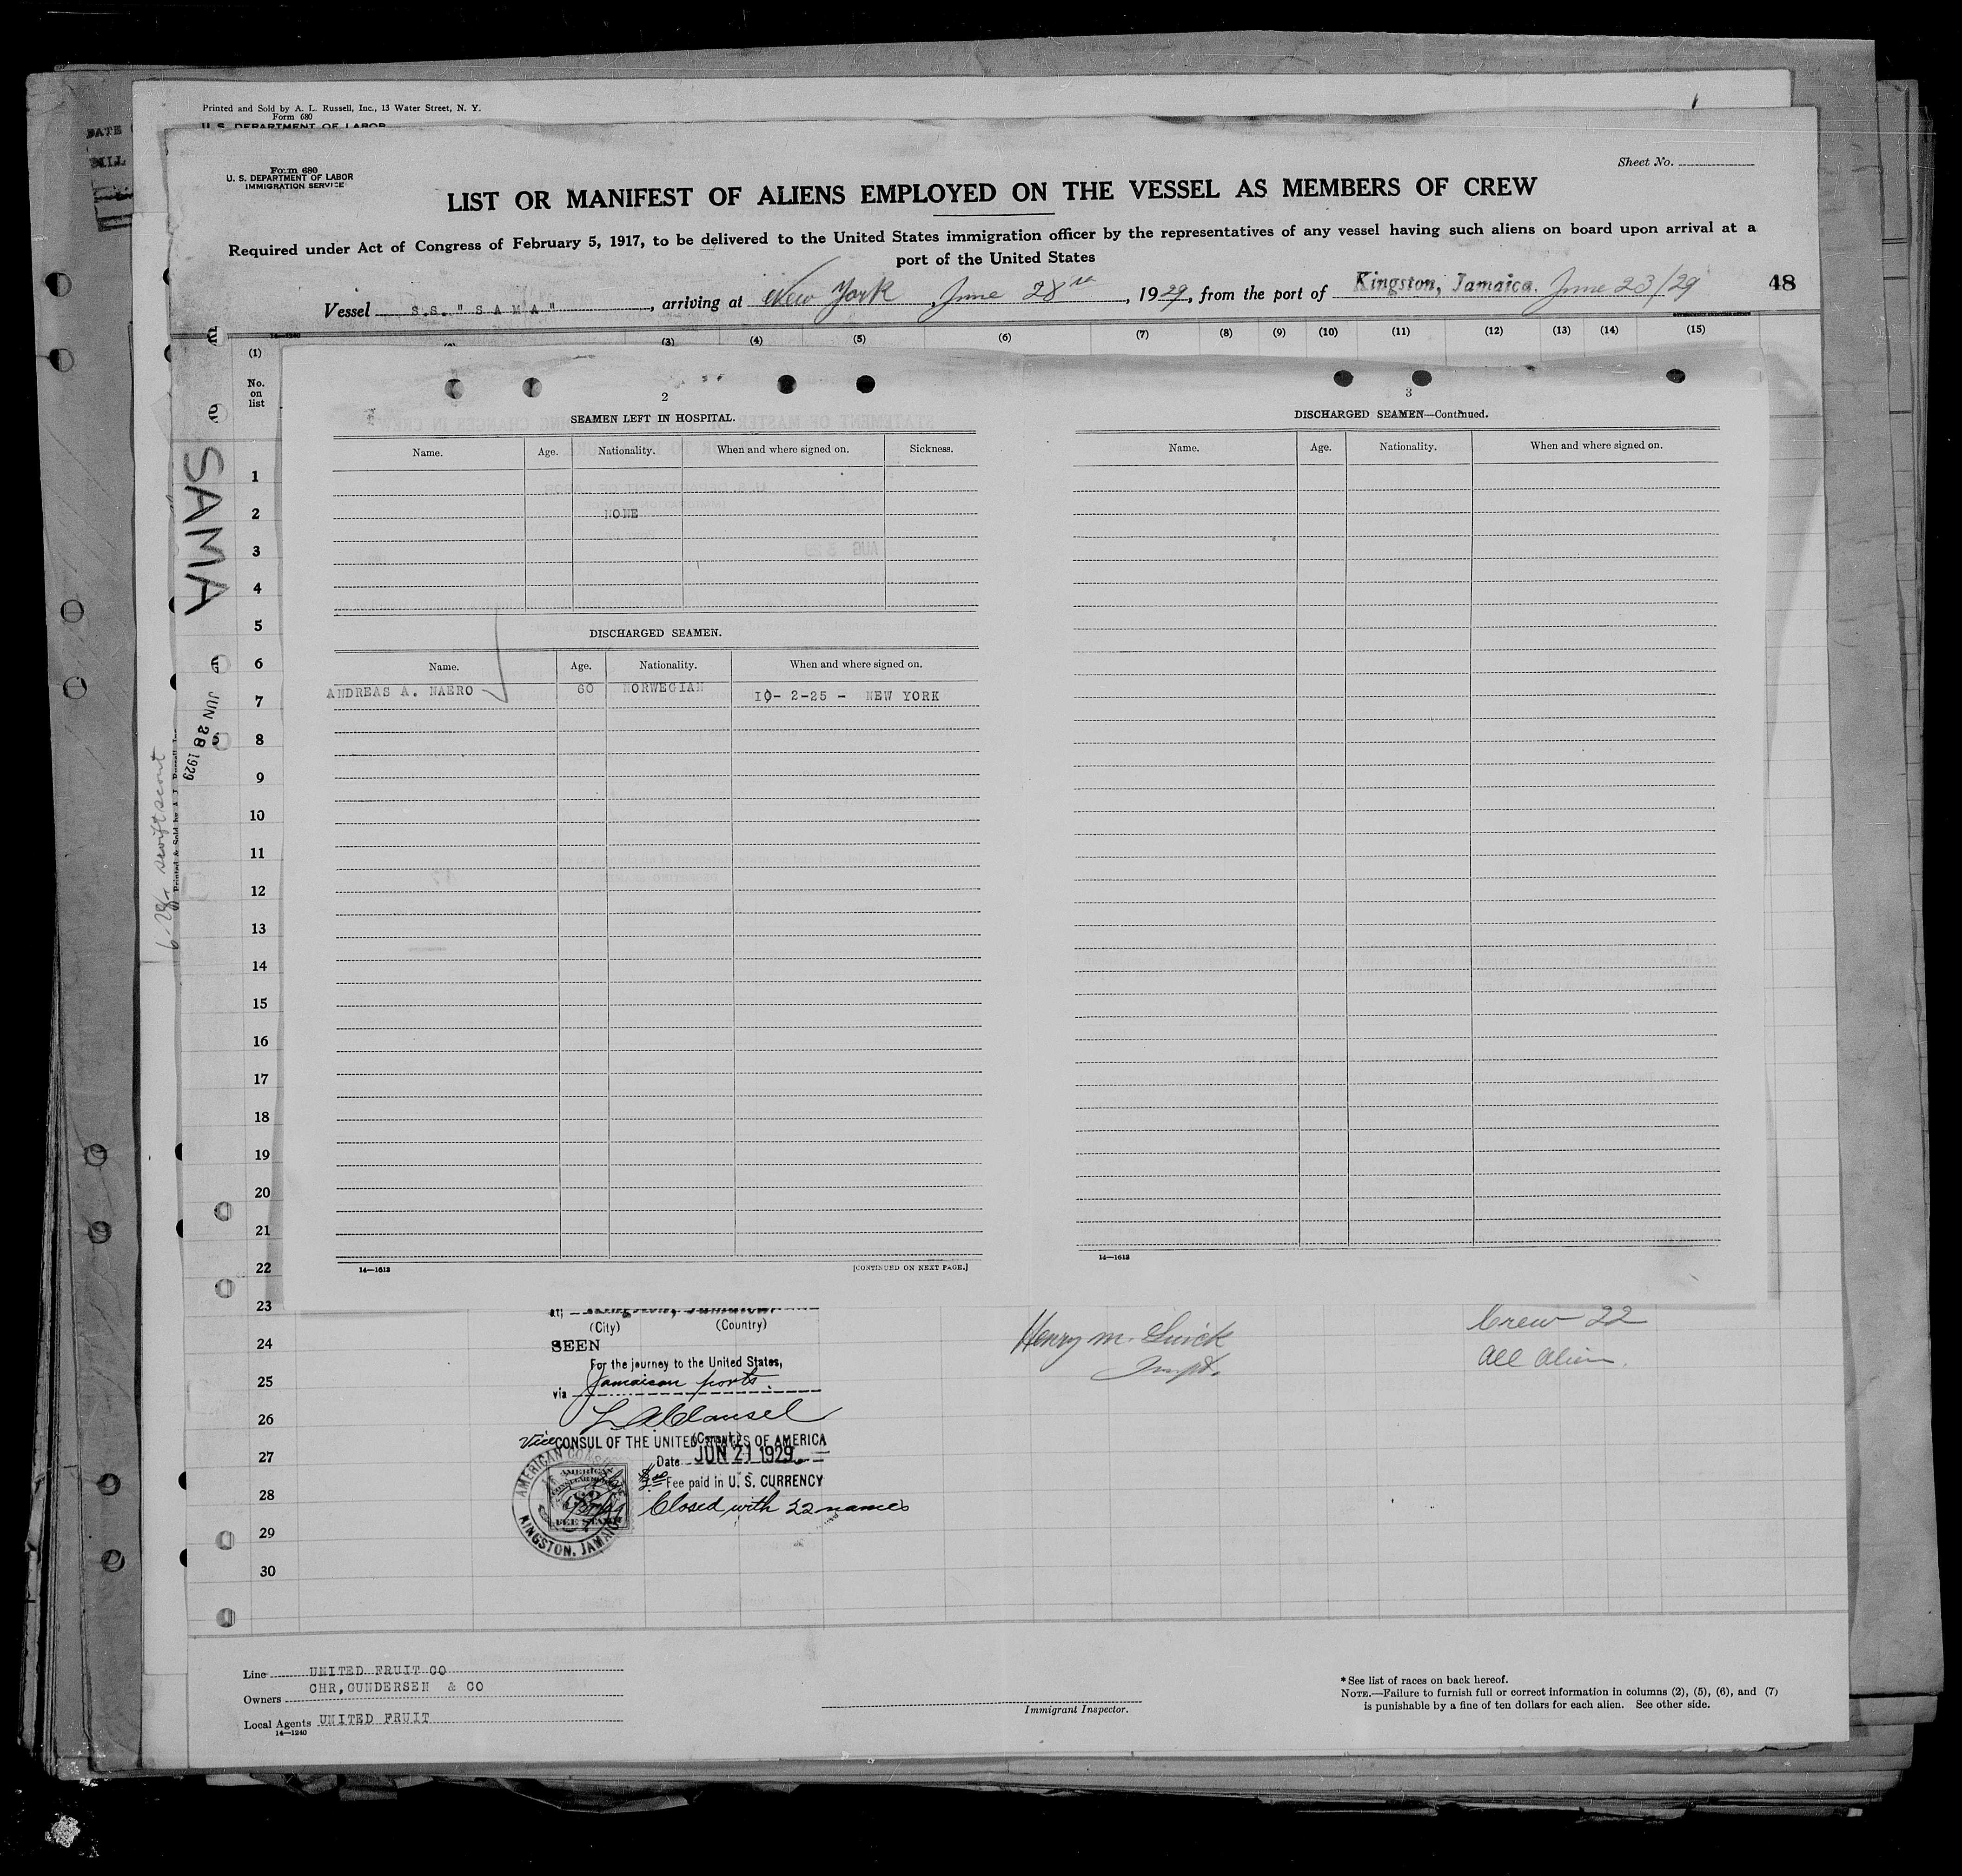 Printed and Sold by A. L. Russell, Inc., 13 Water Street, N. Y.
Form 680
U. S. DEPARTMENT OF LABOR
Form 680
U. S. DEPARTMENT OF LABOR
IMMIGRATION SERVICE
Sheet No.
LIST OR MANIFEST OF ALIENS EMPLOYED ON THE VESSEL AS MEMBERS OF CREW
Required under Act of Congress of February 5, 1917, to be delivered to the United States immigration officer by the representatives of any vessel having such aliens on board upon arrival at a
port of the United States
Vessel S.S. "SAMA", arriving at New York, June 28th, 1929, from the port of Kingston, Jamaica. June 23/29
48
14-1240
(1) (3) (4) (5) (6) (7) (8) (9) (10) (11) (12) (13) (14) (15)
No.
on
list
SAMA
JUN 28 1929
2
SEAMEN LEFT IN HOSPITAL.
Name. Age. Nationality. When and where signed on. Sickness.
NONE
DISCHARGED SEAMEN.
Name. Age. Nationality. When and where signed on.
ANDREAS A. NAERO 60 NORWEGIAN 10- 2-25 - NEW YORK
14-1613
[CONTINUED ON NEXT PAGE.]
3
DISCHARGED SEAMEN—Continued.
Name. Age. Nationality. When and where signed on.
14-1613
1
2
3
4
5
6
7
8
9
10
11
12
13
14
15
16
17
18
19
20
21
22
23
24
25
26
27
28
29
30
at; Kingston, Jamaica.
(City) (Country)
SEEN
For the journey to the United States,
via Jamaican ports
Vice CONSUL OF THE UNITED STATES OF AMERICA
Date JUN 21 1929
Fee paid in U. S. CURRENCY
Closed with 22 names
AMERICAN CONSULATE
KINGSTON, JAMAICA
AMERICAN
FEE STAMP
Henry M.
Inspt.
Crew 22
All Alien.
Line UNITED FRUIT CO
Owners CHR, GUNDERSEN & CO
Local Agents UNITED FRUIT
14-1240
Immigrant Inspector.
* See list of races on back hereof.
NOTE.—Failure to furnish full or correct information in columns (2), (5), (6), and (7)
is punishable by a fine of ten dollars for each alien. See other side.